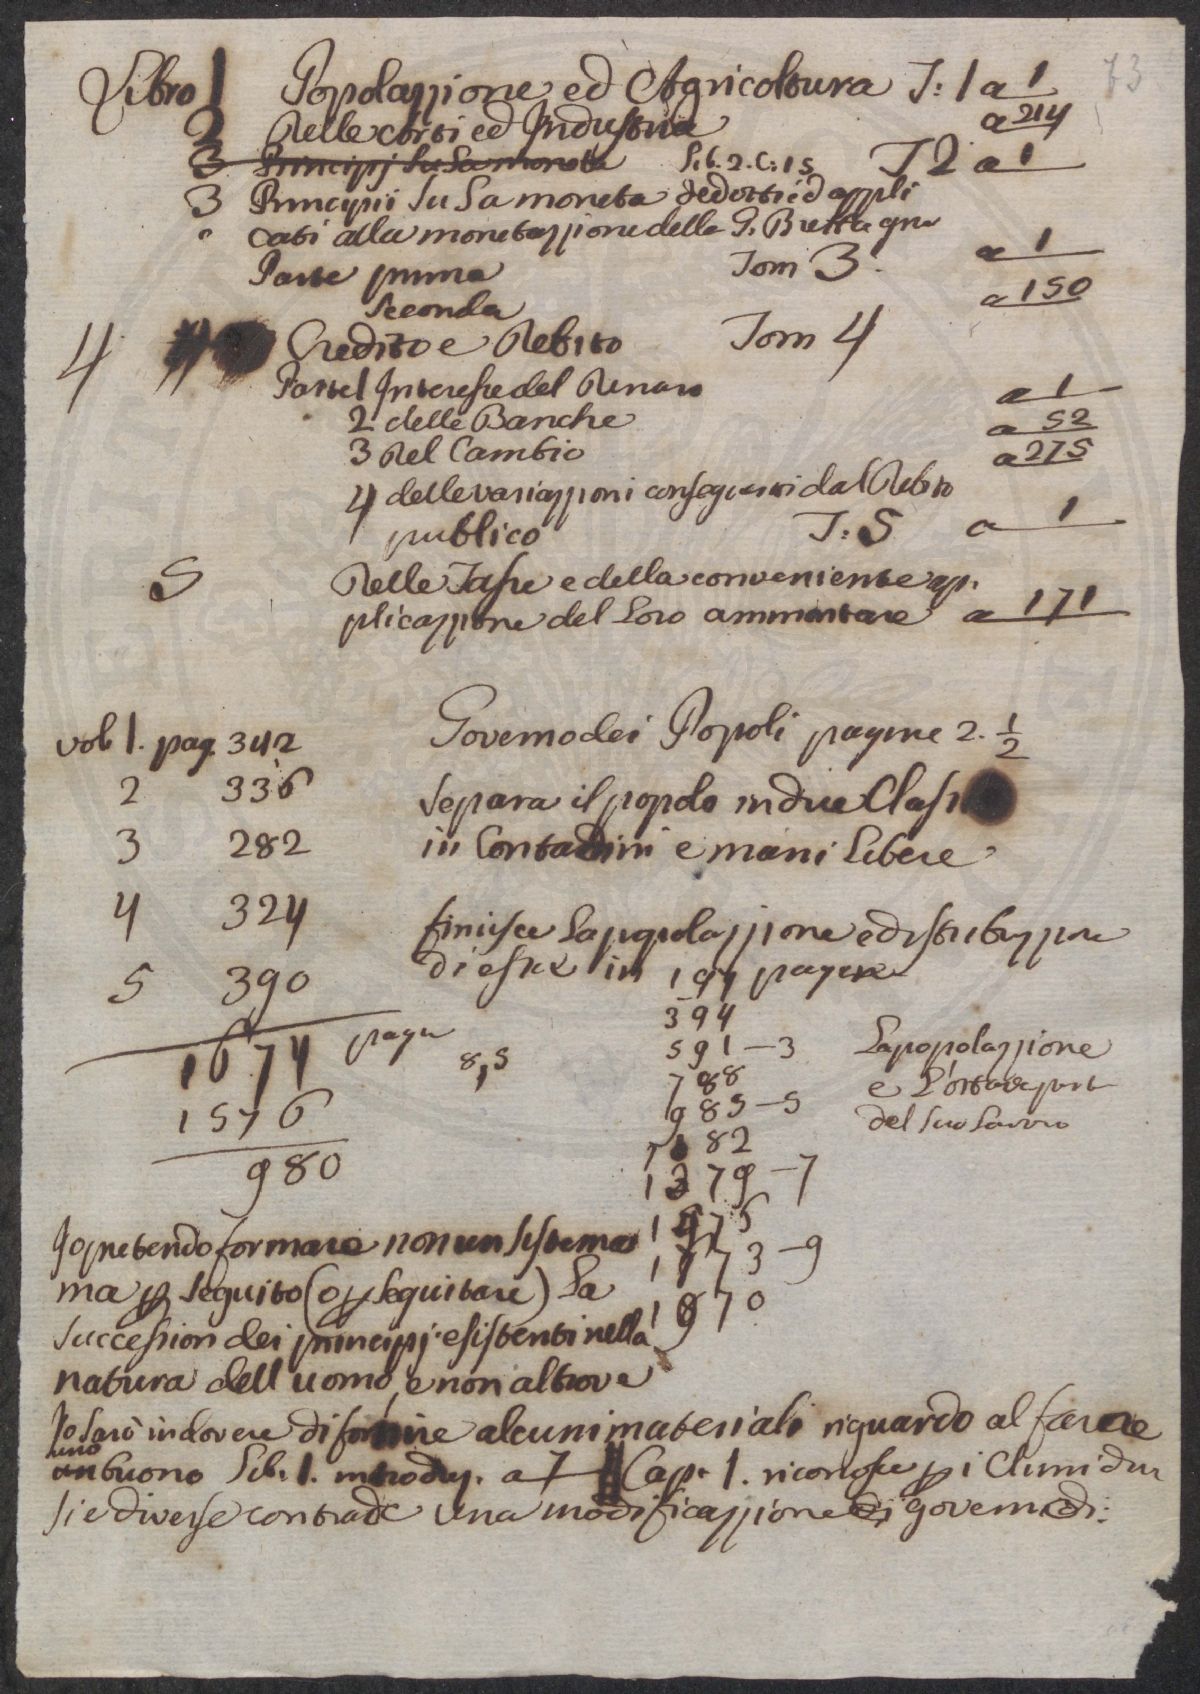 73
Libro 1 Popolazzione ed Agricoltura T: 1 a 1
2 Delle Corti ed Industria a 214
3 Principj su la moneta Lib. 2. C: 15 T 2 a 1
3 Principii su la moneta dedotti ed appli
cati alla monetazzione della G. Bretagna
Parte prima Tom 3. a 1
Seconda a 150
4 Credito e Debito Tom 4
Parte 1 Interesse del Denaro a 1
2 delle Banche a 52
3 Del Cambio a 275
4 delle variazzioni conseguenti dal Debito
publico T: 5 a 1
5 Delle Tasse e della conveniente ap-
plicazzione del loro ammontare a 171
Governo dei Popoli pagine 2. 1/2
separa il popolo in due Classi
in Contadini e mani libere
finisce la popolazzione e distribuzzione
di esse in 197 pagine
vol 1. pag. 342
2 336
3 282
4 324
5 390
1674 pagi
1576
980
8,5
394
591 - 3
788
985 - 5
1182
1379 - 7
1576
1773 - 9
1970
La popolazzione
e l'ottava parte
del suo lavoro
Io pretendo formare non un sistema
ma p seguito (o p seguitare) la
succession dei principj esistenti nella
natura dell uomo, e non altrove
Io sarò in dovere di fornire alcuni materiali riguardo al farne
uno
un buono Lib. 1. introduz. a 7 Cap. 1. riconosce p i Climi di
si e diverse contrade una modificazzione di governi di: